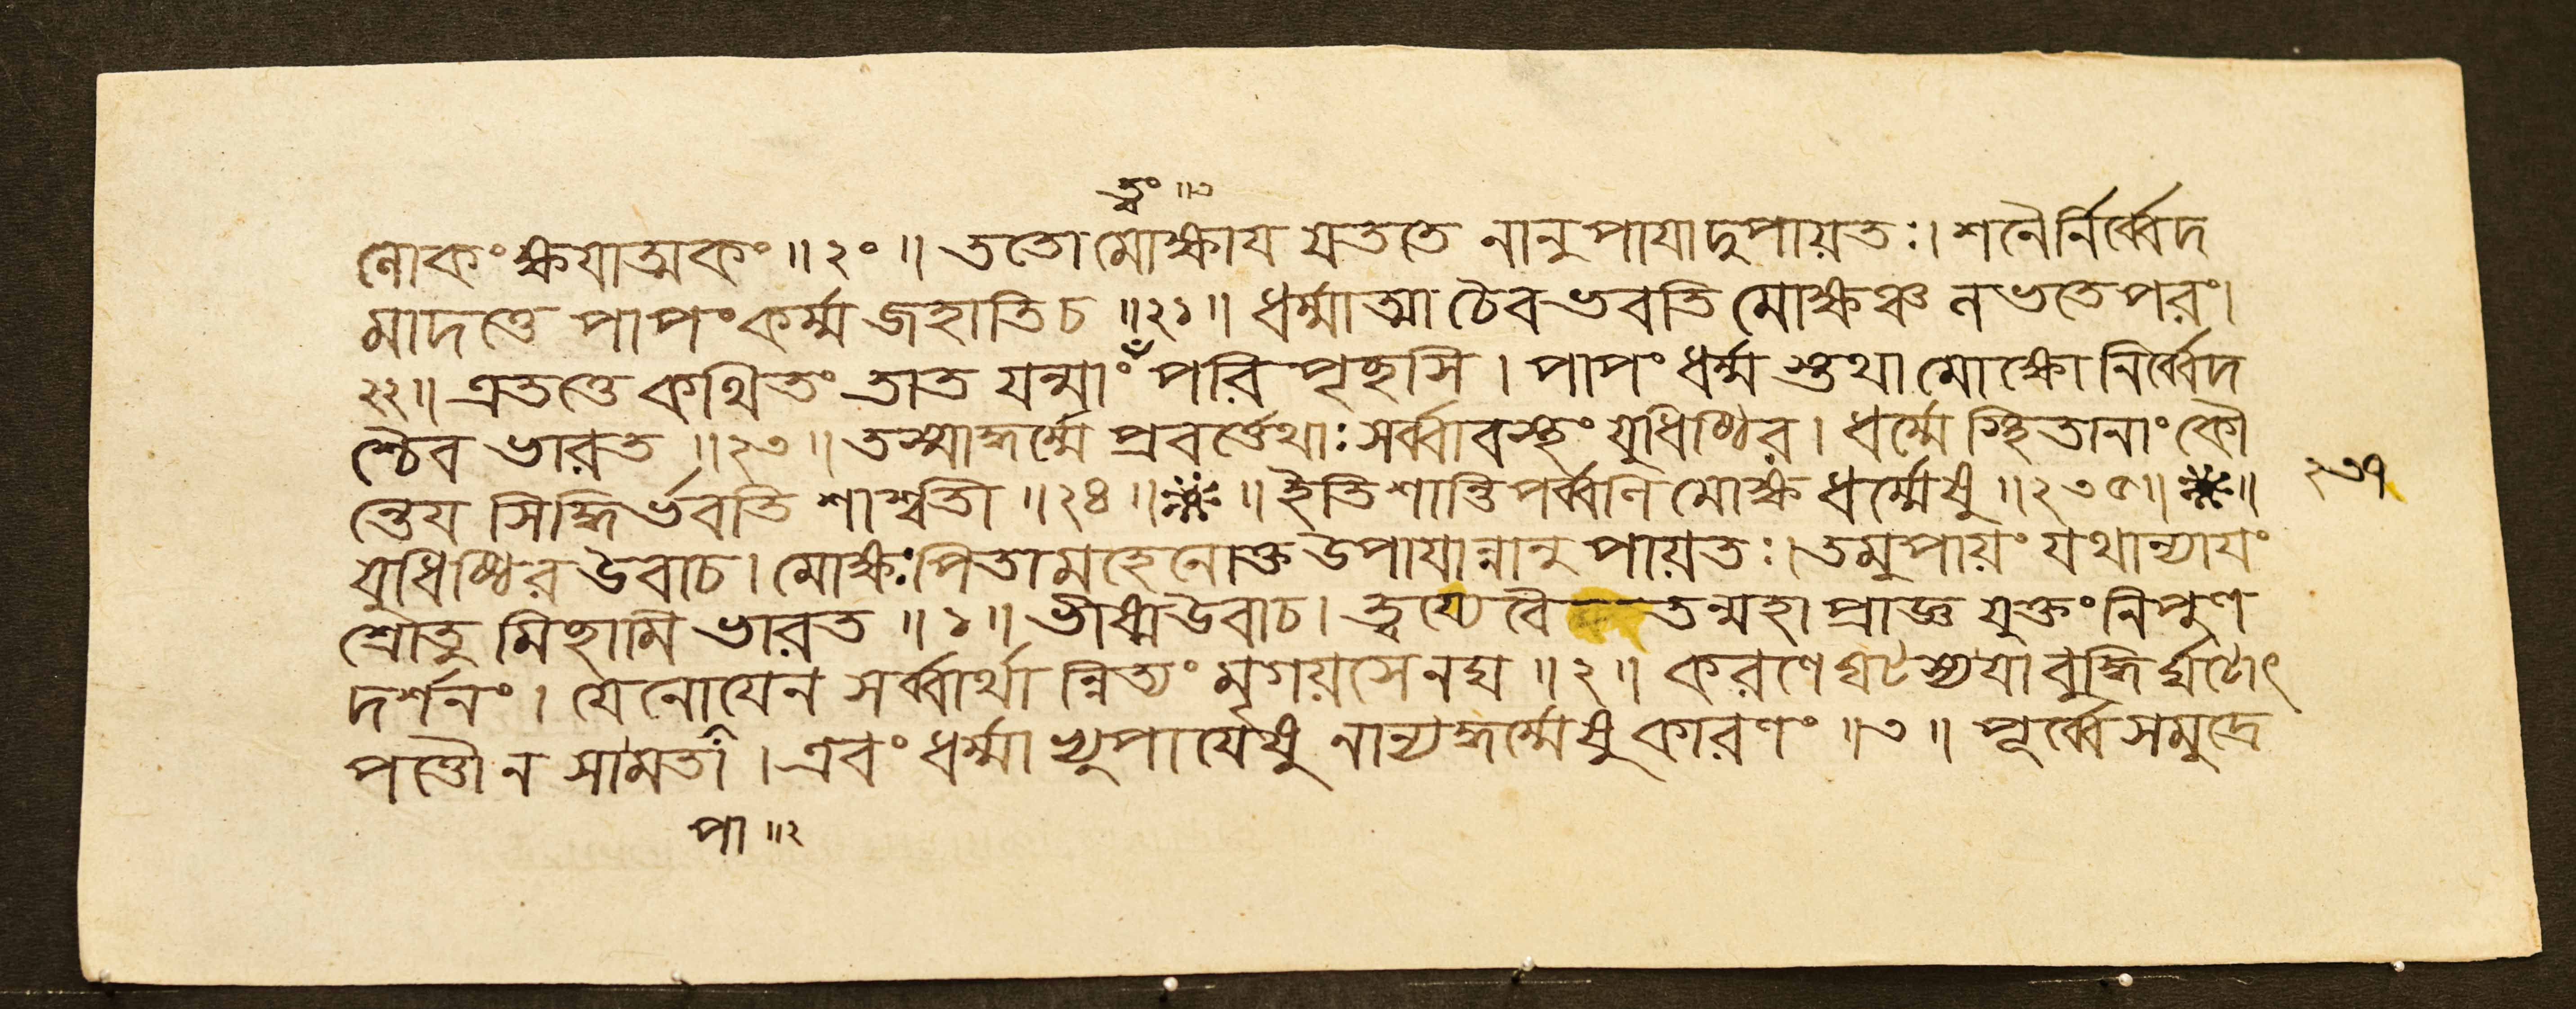 ত্বং ॥৩
লোকং ক্ষয়াত্মকং ॥২০॥ ততো মোক্ষায যততে নানুপাযাদুপায়তঃ। শনৈর্নির্ব্বেদ
মাদত্তে পাপং কর্ম্ম জহাতি চ ॥২১॥ ধর্ম্মাত্মা চৈব ভবতি মোক্ষঞ্চ লভতে পরং।
২২॥ এতত্তে কথিতং তাত যন্মাং পরিপৃচ্ছসি। পাপং ধর্ম্মস্তথা মোক্ষো নির্ব্বেদ
শ্চৈব ভারত ॥২৩॥ তস্মাদ্ধর্ম্মে প্রবর্ত্তেথাঃ সর্ব্বাবস্থং যুধিষ্ঠির। ধর্ম্মে স্থিতানাং কৌ
ন্তেয সিদ্ধির্ভবতি শাশ্বতী ॥২৪॥ ॥ ইতি শান্তিপর্ব্বণি মোক্ষধর্ম্মেষু ॥২৩৫॥ ॥
২৩৭
যুধিষ্ঠির উবাচ। মোক্ষঃ পিতামহেনোক্ত উপাযান্নানুপায়তঃ। তমুপায়ং যথান্যাযং
শ্রোতুমিচ্ছামি ভারত ॥১॥ ভীষ্ম উবাচ। ত্বয্যেবৈ তন্মহাপ্রাজ্ঞ যুক্তং নিপুণ
দর্শনং। যেনোযেন সর্ব্বার্থান্নিত্যং মৃগয়সেনঘ ॥২॥ করণে ঘটস্য যা বুদ্ধির্ঘটোৎ
পত্তৌ ন সা মতা। এবং ধর্ম্মাভ্যুপাযেষু নান্যদ্ধর্ম্মেষু কারণং ॥৩॥ পূর্ব্বে সমুদ্রে
পা ॥২